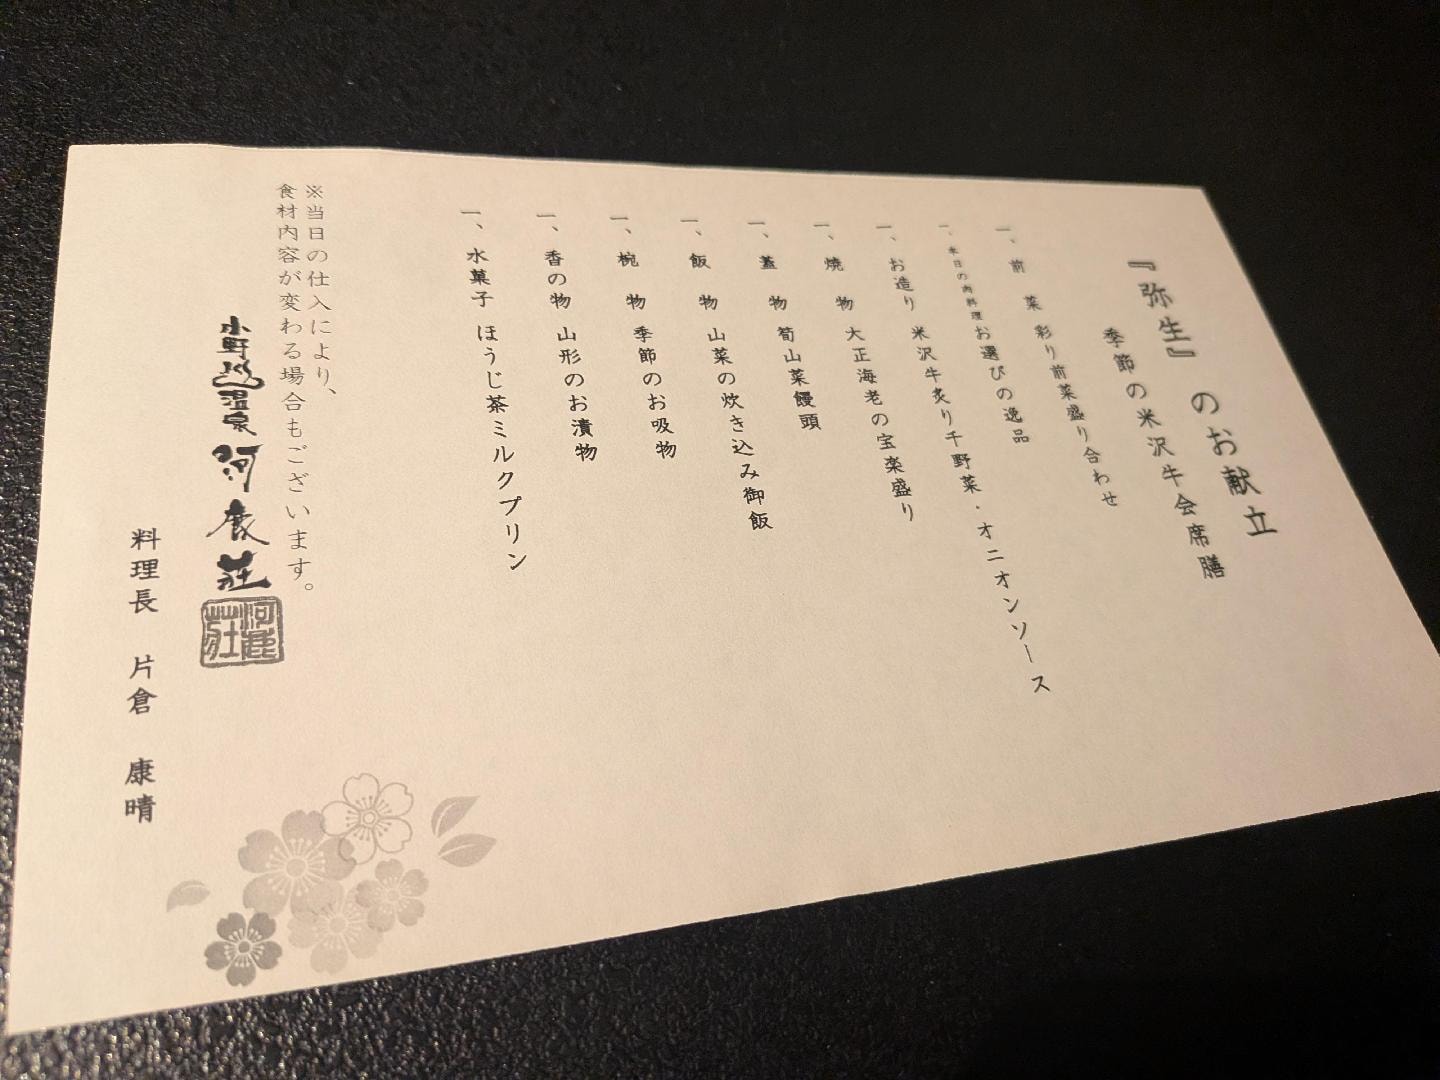 『弥生』のお献立
季節の米沢牛会席膳
一、前菜 彩り前菜盛り合わせ
一、本日の肉料理 お選びの逸品
一、お造り 米沢牛炙り千野菜・オニオンソース
一、焼物 大正海老の宝楽盛り
一、蓋物 筍山菜饅頭
一、飯物 山菜の炊き込み御飯
一、椀物 季節のお吸物
一、香の物 山形のお漬物
一、水菓子 ほうじ茶ミルクプリン
※当日の仕入により、
食材内容が変わる場合もございます。
小野川温泉 河鹿荘
河鹿荘
料理長 片倉 康晴